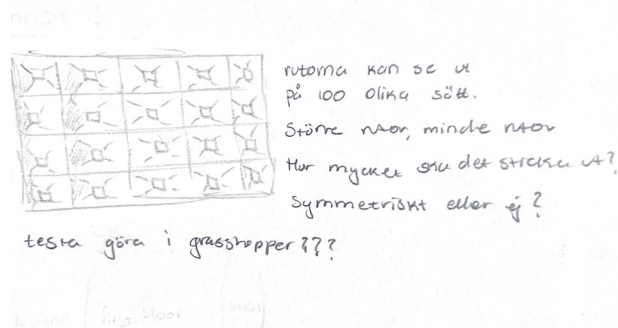 rutorna kan se ut
på 100 olika sätt.
Större rutor, mindre rutor
Hur mycket ska det sticka ut?
Symmetriskt eller ej?
testa göra i grasshopper???
first floor